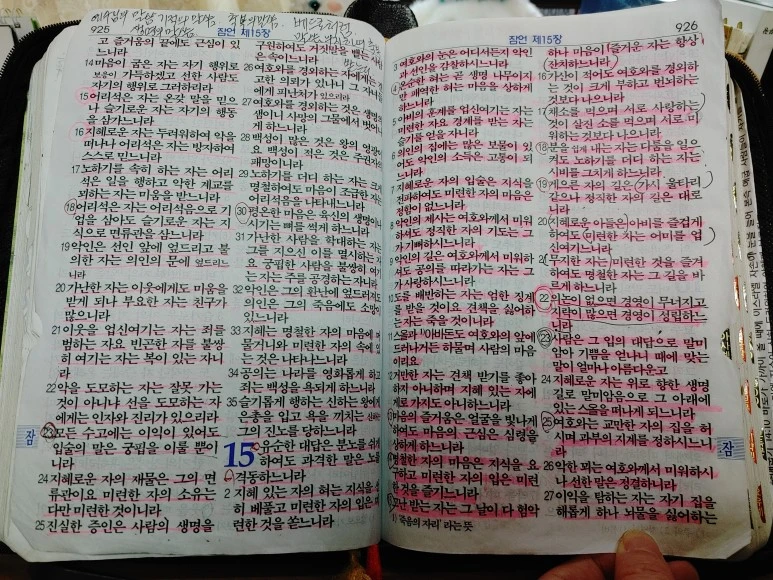 925
잠언 제15장
고 즐거움의 끝에도 근심이 있
느니라
14 마음이 굽은 자는 자기 행위로
보응이 가득하겠고 선한 사람도
자기의 행위로 그러하리라
15 어리석은 자는 온갖 말을 믿으
나 슬기로운 자는 자기의 행동
을 삼가느니라
16 지혜로운 자는 두려워하여 악을
떠나나 어리석은 자는 방자하여
스스로 믿느니라
17 노하기를 속히 하는 자는 어리
석은 일을 행하고 악한 계교를
꾀하는 자는 미움을 받느니라
18 어리석은 자는 어리석음으로 기
업을 삼아도 슬기로운 자는 지
식으로 면류관을 삼느니라
19 악인은 선인 앞에 엎드리고 불
의한 자는 의인의 문에 엎드리느
니라
20 가난한 자는 이웃에게도 미움을
받게 되나 부요한 자는 친구가
많으니라
21 이웃을 업신여기는 자는 죄를
범하는 자요 빈곤한 자를 불쌍
히 여기는 자는 복이 있는 자니
라
22 악을 도모하는 자는 잘못 가는
것이 아니냐 선을 도모하는 자
에게는 인자와 진리가 있으리라
23 모든 수고에는 이익이 있어도
입술의 말은 궁핍을 이룰 뿐이
니라
24 지혜로운 자의 재물은 그의 면
류관이요 미련한 자의 소유는
다만 미련한 것이니라
25 진실한 증인은 사람의 생명을
구원하여도 거짓말을 뱉는 사람
은 속이느니라
26 여호와를 경외하는 자에게는
고한 의뢰가 있나니 그 자녀들
에게 피난처가 있으리라
27 여호와를 경외하는 것은 생명의
샘이니 사망의 그물에서 벗어나
게 하느니라
28 백성이 많은 것은 왕의 영광이
요 백성이 적은 것은 주권자의
패망이니라
29 노하기를 더디 하는 자는 크게
명철하여도 마음이 조급한 자는
어리석음을 나타내느니라
30 평온한 마음은 육신의 생명이나
시기는 뼈를 썩게 하느니라
31 가난한 사람을 학대하는 자는
그를 지으신 이를 멸시하는 자
요 궁핍한 사람을 불쌍히 여기
는 자는 주를 공경하는 자니라
32 악인은 그의 환난에 엎드러져도
의인은 그의 죽음에도 소망이
있느니라
33 지혜는 명철한 자의 마음에 머
물거니와 미련한 자의 속에 있
는 것은 나타나느니라
34 공의는 나라를 영화롭게 하고
죄는 백성을 욕되게 하느니라
35 슬기롭게 행하는 신하는 왕에게
은총을 입고 욕을 끼치는 신하는
그의 진노를 당하느니라
15 유순한 대답은 분노를 쉬게
하여도 과격한 말은 노를
격동하느니라
2 지혜 있는 자의 혀는 지식을 선
히 베풀고 미련한 자의 입은 미
련한 것을 쏟느니라
잠
잠언 제15장
926
3 여호와의 눈은 어디서든지 악인
과 선인을 감찰하시느니라
4 온순한 혀는 곧 생명 나무이지
만 패역한 혀는 마음을 상하게
하느니라
5 아비의 훈계를 업신여기는 자는
미련한 자요 경계를 받는 자는
슬기를 얻을 자니라
6 의인의 집에는 많은 보물이 있
어도 악인의 소득은 고통이 되
느니라
7 지혜로운 자의 입술은 지식을
전파하여도 미련한 자의 마음은
정함이 없느니라
8 악인의 제사는 여호와께서 미워
하셔도 정직한 자의 기도는 그
가 기뻐하시느니라
9 악인의 길은 여호와께서 미워하
셔도 공의를 따라가는 자는 그
가 사랑하시느니라
10 도를 배반하는 자는 엄한 징계
를 받을 것이요 견책을 싫어하
는 자는 죽을 것이니라
11 스올과 아바돈도 여호와의 앞에
드러나거든 하물며 사람의 마음
이리요
12 거만한 자는 견책 받기를 좋아
하지 아니하며 지혜 있는 자에
게로 가지도 아니하느니라
13 마음의 즐거움은 얼굴을 빛나게
하여도 마음의 근심은 심령을
상하게 하느니라
14 명철한 자의 마음은 지식을 요
구하고 미련한 자의 입은 미련
한 것을 즐기느니라
15 고난 받는 자는 그 날이 다 험악
하나 마음이 즐거운 자는 항상
잔치하느니라
16 가산이 적어도 여호와를 경외하
는 것이 크게 부하고 번뇌하는
것보다 나으니라
17 채소를 먹으며 서로 사랑하는
것이 살진 소를 먹으며 서로 미
워하는 것보다 나으니라
18 분을 쉽게 내는 자는 다툼을 일으
켜도 노하기를 더디 하는 자는
시비를 그치게 하느니라
19 게으른 자의 길은 가시 울타리
같으나 정직한 자의 길은 대로
니라
20 지혜로운 아들은 아비를 즐겁게
하여도 미련한 자는 어미를 업
신여기느니라
21 무지한 자는 미련한 것을 즐겨
하여도 명철한 자는 그 길을 바
르게 하느니라
22 의논이 없으면 경영이 무너지고
지략이 많으면 경영이 성립하느
니라
23 사람은 그 입의 대답으로 말미
암아 기쁨을 얻나니 때에 맞는
말이 얼마나 아름다운고
24 지혜로운 자는 위로 향한 생명
길로 말미암음으로 그 아래에
있는 스올을 떠나게 되느니라
25 여호와는 교만한 자의 집을 허
시며 과부의 지계를 정하시느니
라
26 악한 꾀는 여호와께서 미워하시
나 선한 말은 정결하니라
27 이익을 탐하는 자는 자기 집을
해롭게 하나 뇌물을 싫어하는
1) '죽음의 자리' 라는 뜻
잠